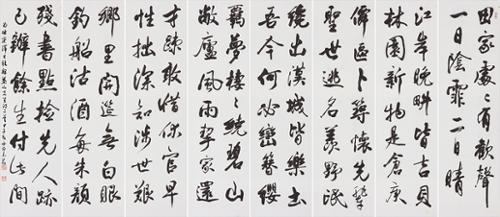 田家處處有歡聲
一日陰霏二日晴
江岸晚畔皆吉貝
林園新物是倉庚
僻區卜築懷先
聖世逃名羨野氓
纔出漢城皆樂土
吾今何必戀簪纓
羈夢棲棲繞碧山
敝廬風雨挈家還
才疎敢惜休官早
性拙深知涉世艱
鄉里閒遊無白眼
釣船沽酒每朱顔
殘書點檢先人跡
已辦餘生付此間